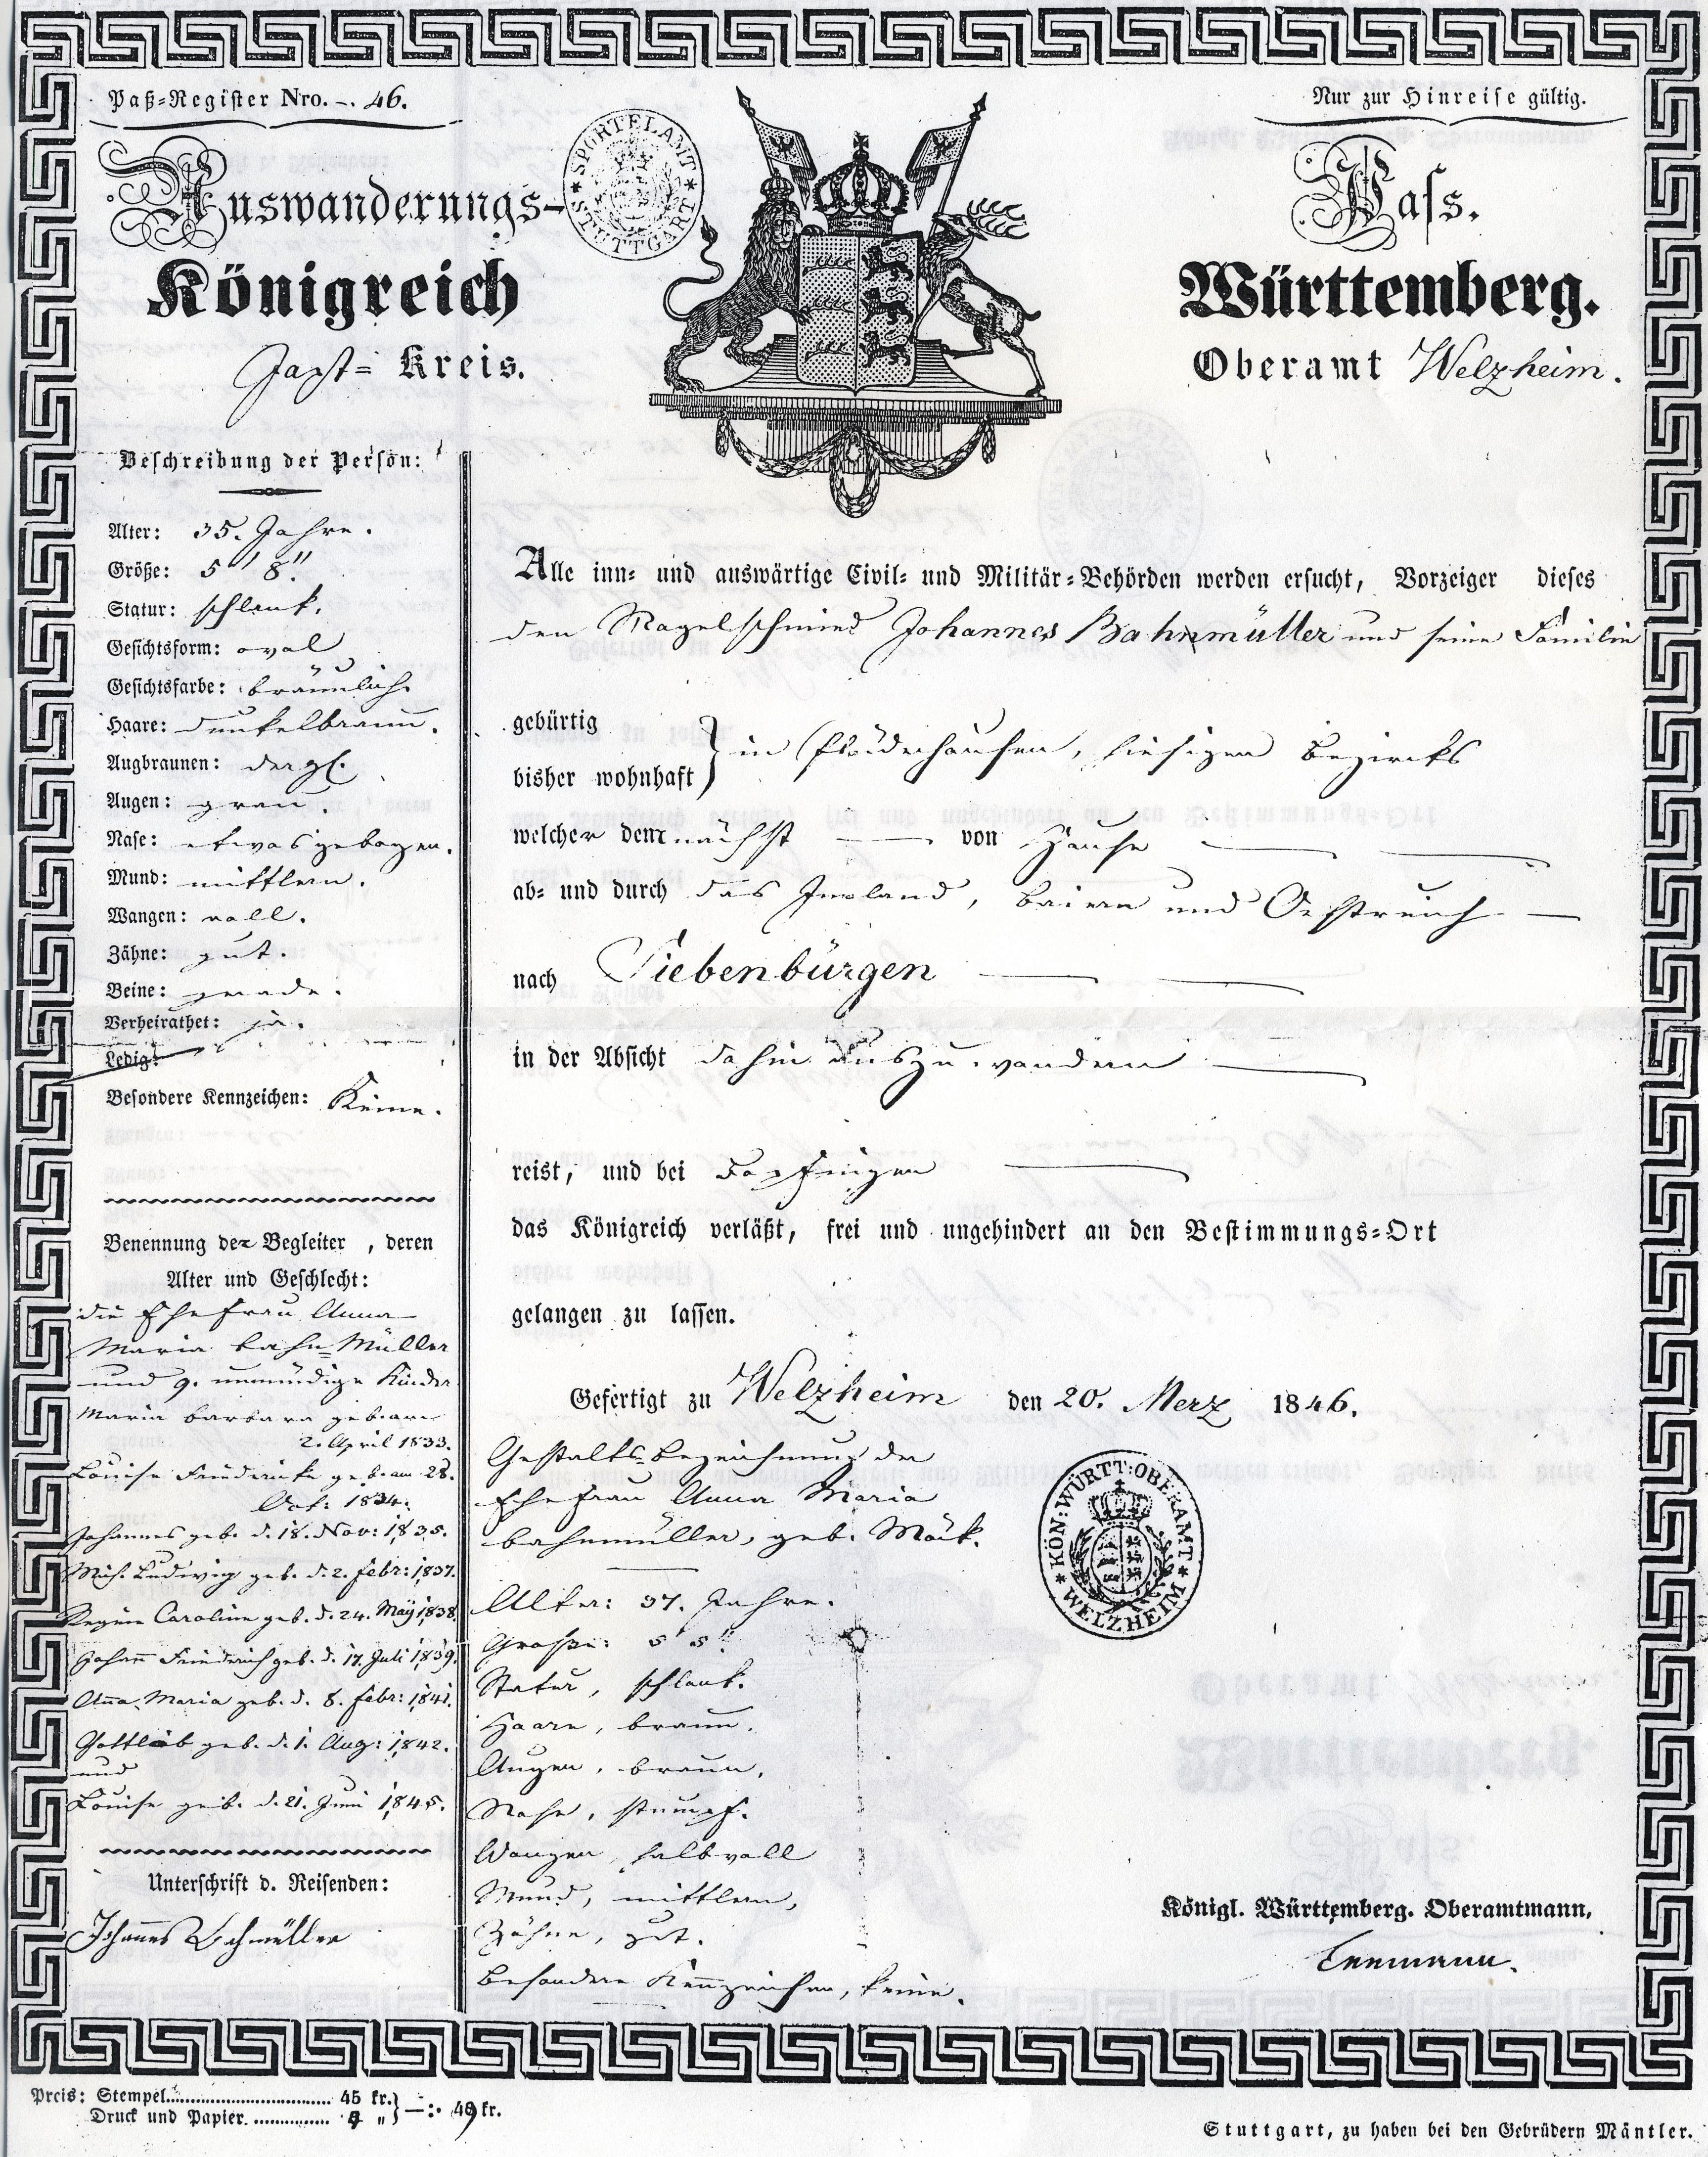 Paß-Register Nro. -. 46.
Nur zur Hinreise gültig.
SPORTELAMT
STUTTGART
Auswanderungs-
Pass.
Königreich
Württemberg.
Jaxt- Kreis.
Oberamt Welzheim.
Beschreibung der Person:
Alter: 35. Jahre.
Größe: 5' 8".
Statur: schlank.
Gesichtsform: oval
Gesichtsfarbe: bräunlich
Haare: dunkelbraun.
Augbraunen: dergl.
Augen: grau.
Nase: etwas gebogen.
Mund: mittlern.
Wangen: voll.
Zähne: gut.
Beine: gerade.
Verheirathet: ja.
Ledig:
Besondere Kennzeichen: Keine.
Benennung der Begleiter, deren
Alter und Geschlecht:
die Ehefrau Anna
Maria Bahn-Müller
und 9. unmündige Kinder
Maria Barbara geb. am
2. April 1833.
Louise Friederike geb. am 28.
Oct: 1834.
Johannes geb. d. 18. Nov: 1835.
Mich. Ludwig geb. d. 2. Febr: 1837.
Regine Caroline geb. d. 24. Maÿ 1838.
Johann Friederich geb. d. 17. Juli 1839.
Anna Maria geb. d. 8. Febr: 1841.
Gottlieb geb. d. 1. Aug: 1842.
und
Louise geb. d. 21. Juni 1845.
Unterschrift d. Reisenden:
Johannes Bahmüller
Alle inn- und auswärtige Civil- und Militär-Behörden werden ersucht, Vorzeiger dieses
den Nagelschmied Johannes Bahnmüller und seine Familie
gebürtig
bisher wohnhaft } in Plüderhausen, hiesigen Bezirks
welcher demnächst — von Hause —
ab- und durch das Inland, Baiern und Oestreich —
nach Siebenbürgen —
in der Absicht dahin auszuwandern —
reist, und bei Bopfingen —
das Königreich verläßt, frei und ungehindert an den Bestimmungs-Ort
gelangen zu lassen.
Gefertigt zu Welzheim den 20. Merz 1846.
Gestalts-Bezeichnung der
Ehefrau Anna Maria
Bahnmüller, geb. Mäck.
Alter: 37. Jahre.
Große: 5' 5".
Statur, schlank.
Haare, braun.
Augen, braun.
Nase, stumpf.
Wangen, halbvoll
Mund, mittlern,
Zähne, gut.
Besondere Kennzeichen, keine.
KÖN: WÜRTT: OBERAMT
WELZHEIM
Königl. Württemberg. Oberamtmann,
Preis: Stempel........ 45 kr.
Druck und Papier........ 4 „ } —:. 49 kr.
Stuttgart, zu haben bei den Gebrüdern Mäntler.